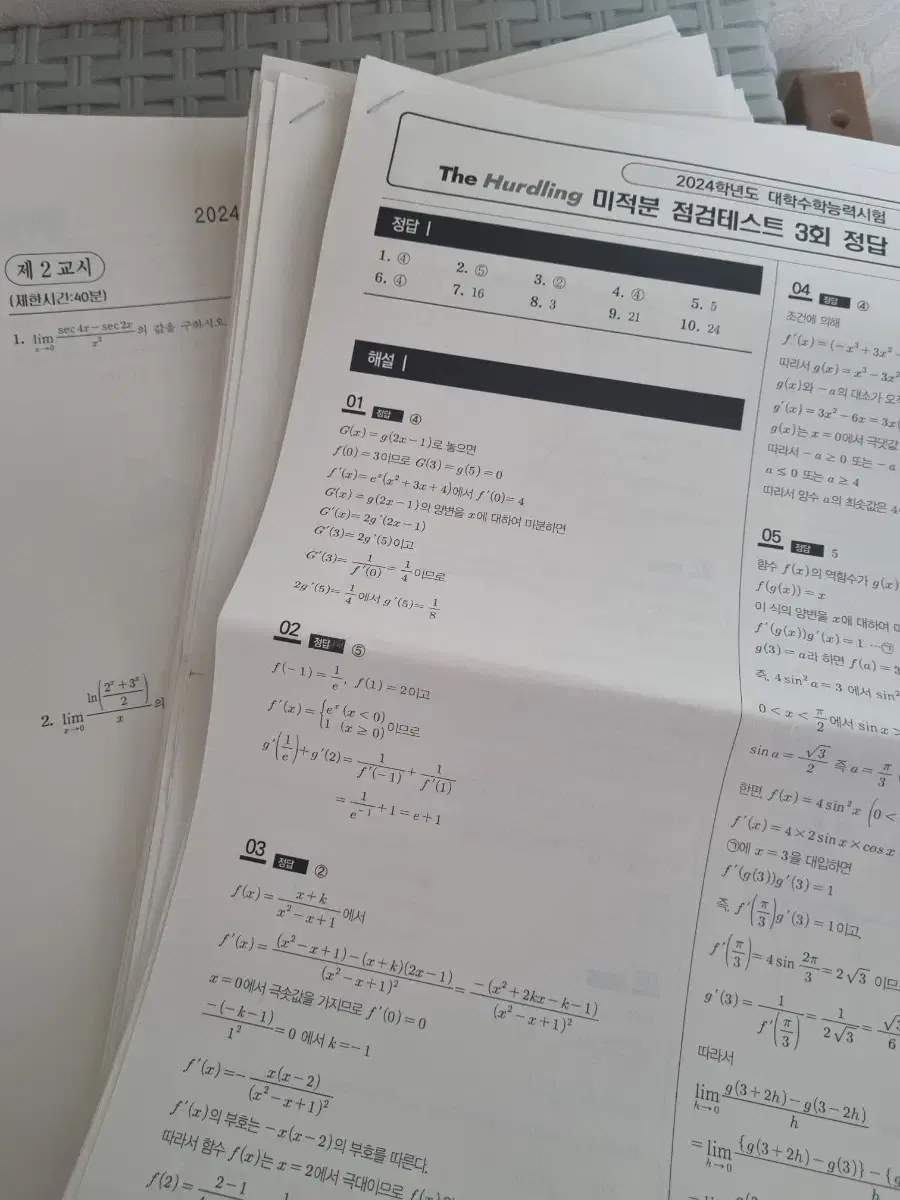 2024
제 2 교시
(제한시간:40분)
1. lim x→0 (sec4x − sec2x)/x² 의 값을 구하시오.
2. lim x→0 ln((2ˣ+3ˣ)/2)/x 의
2024학년도 대학수학능력시험
The Hurdling 미적분 점검테스트 3회 정답
정답 |
1. ④ 2. ⑤ 3. ② 4. ④ 5. 5
6. ④ 7. 16 8. 3 9. 21 10. 24
해설 |
01 정답 ④
G(x)=g(2x−1)로 놓으면
f(0)=3이므로 G(3)=g(5)=0
f′(x)=eˣ(x²+3x+4)에서 f′(0)=4
G(x)=g(2x−1)의 양변을 x에 대하여 미분하면
G′(x)=2g′(2x−1)
G′(3)=2g′(5)이고
G′(3)=1/f′(0)=1/4이므로
2g′(5)=1/4에서 g′(5)=1/8
02 정답 ⑤
f(−1)=1/e, f(1)=2이고
f′(x)={eˣ (x<0)
1 (x≥0) 이므로
g′(1/e)+g′(2)=1/f′(−1)+1/f′(1)
=1/e⁻¹+1=e+1
03 정답 ②
f(x)=(x+k)/(x²−x+1)에서
f′(x)=((x²−x+1)−(x+k)(2x−1))/(x²−x+1)²=−(x²+2kx−k−1)/(x²−x+1)²
x=0에서 극솟값을 가지므로 f′(0)=0
−(−k−1)/1²=0 에서 k=−1
f′(x)=−x(x−2)/(x²−x+1)²
f′(x)의 부호는 −x(x−2)의 부호를 따른다.
따라서 함수 f(x)는 x=2에서 극대이므로
f(2)=
04 정답 ④
조건에 의해
f′(x)=(−x³+3x²−
따라서 g(x)=x³−3x²
g(x)와 −a의 대소가
g′(x)=3x²−6x=3x(
g(x)는 x=0에서 극댓값
따라서 −a≥0 또는 −a
a≤0 또는 a≥4
따라서 양수 a의 최솟값은 4
05 정답 5
함수 f(x)의 역함수가 g(x)
f(g(x))=x
이 식의 양변을 x에 대하여
f′(g(x))g′(x)=1 ⋯㉠
g(3)=a라 하면 f(a)=3
즉, 4sin²a=3 에서 sin²
0<x<π/2에서 sinx>
sina=√3/2 즉 a=π/3
한편, f(x)=4sin²x (0<
f′(x)=4×2sinx×cosx
㉠에 x=3을 대입하면
f′(g(3))g′(3)=1
즉, f′(π/3)g′(3)=1이고,
f′(π/3)=4sin 2π/3=2√3 이므
g′(3)=1/f′(π/3)=1/2√3=√3/6
따라서
lim h→0 (g(3+2h)−g(3−2h))/h
=lim h→0 {g(3+2h)−g(3)}−{g